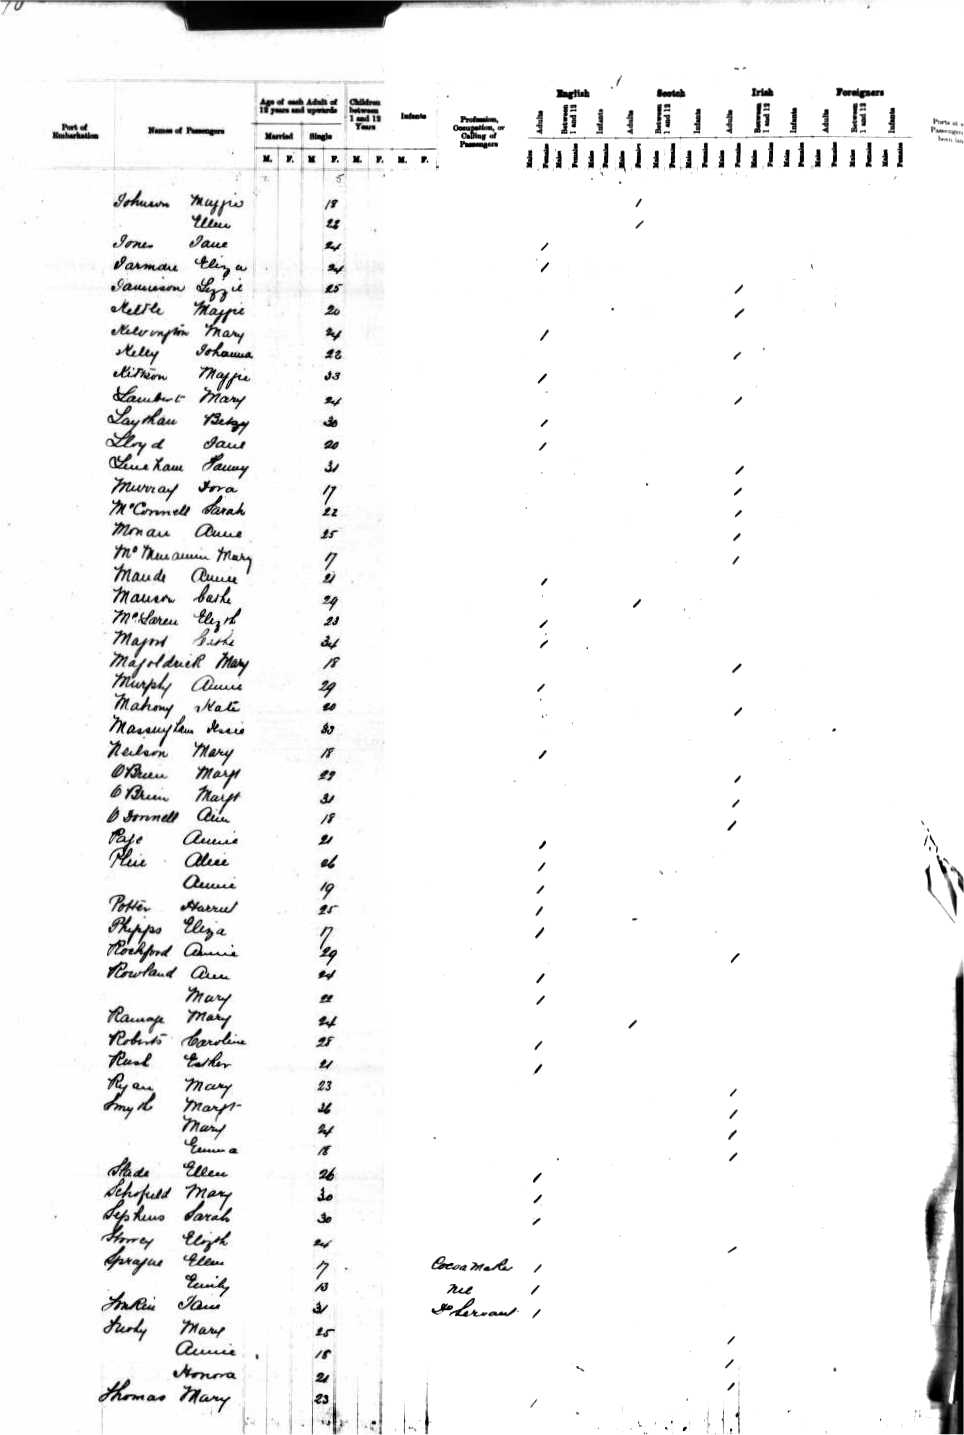 Port of Embarkation
Names of Passengers
Age of each Adult of 12 years and upwards
Married Single
Children between 1 and 12 Years
Infants
M. F. M F. M. F. M. F.
Profession, Occupation, or Calling of Passengers
English Scotch Irish Foreigners
Adults Between 1 and 12 Infants Adults Between 1 and 12 Infants Adults Between 1 and 12 Infants Adults Between 1 and 12 Infants
Males Females Males Females Males Females Males Females Males Females Males Females Males Females Males Females Males Females Males Females Males Females Males Females
Johnson Maggie 18 /
Ellen 22 /
Jones Jane 24 /
Jarman Eliza 24 /
Jamieson Lizzie 25 /
Kettle Maggie 20 /
Kelvington Mary 24 /
Kelly Johanna 22 /
Kitson Maggie 33 /
Lambert Mary 24 /
Laythau Betsy 30 /
Lloyd Jane 20 /
Lineham Fanny 31 /
Murray Dora 17 /
McConnell Sarah 22 /
Monan Anne 25 /
McMenamin Mary 17 /
Maude Annie 21 /
Manson Cathe 29 /
McLaren Elizth 23 /
Majors Cathe 34 /
Magoldrick Mary 18 /
Murphy Annie 29 /
Mahony Kate 20 /
Massingham Jessie 30
Neilson Mary 18 /
O'Brien Margt 22 /
O'Brien Margt 31 /
O'Donnell Ann 18 /
Page Annie 21 /
Alice 26 /
Annie 19 /
Potter Harriet 25 /
Phipps Eliza 17 /
Rochford Annie 29 /
Rowland Ann 24 /
Mary 22 /
Ramage Mary 24 /
Roberts Caroline 28 /
Rush Esther 21 /
Ryan Mary 23 /
Smyth Margt 26 /
Mary 24 /
Emma 18 /
Slade Ellen 26 /
Schofield Mary 30 /
Sephens Sarah 30 /
Storey Elizth 24 /
Sprague Ellen 17 Cocoa Maker /
Emily 13 Nil /
Tonkin Jane 31 Do Servant /
Tuohy Mary 25 /
Annie 18 /
Honora 21 /
Thomas Mary 23 /